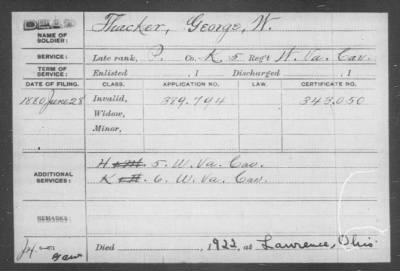 DEAD
NAME OF SOLDIER: Thacker, George, W.
SERVICE: Late rank, P. Co. K 5 Reg't W. Va. Cav.
TERM OF SERVICE: Enlisted , 1 Discharged , 1
DATE OF FILING. CLASS. APPLICATION NO. LAW. CERTIFICATE NO.
1880 June 28 Invalid, 389.794 343.050
Widow,
Minor,
ADDITIONAL SERVICES: H 5. W. Va. Cav.
K 6. W. Va. Cav.
REMARKS:
Died , 1922, at Lawrence, Ohio